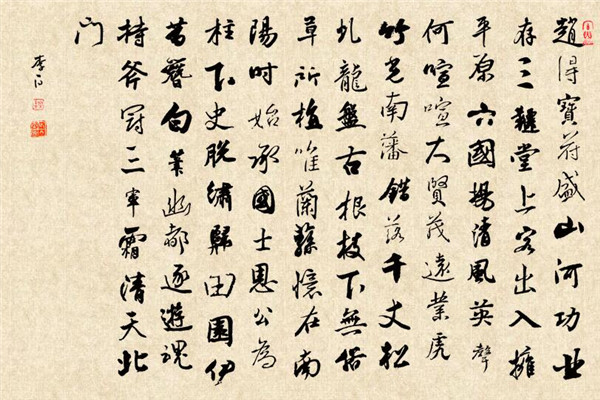 趙得寶符盛山河功业
存三韆堂上客出入擁
平原六國揚清風英聲
何喧喧大賢茂遠業虎
竹光南藩錯落千丈松
虬龍盤古根枝下無俗
草所植唯蘭蓀憶在南
陽時始承國士恩公為
柱下史脫繡歸田園伊
昔簪白筆幽都逐遊魂
持斧冠三軍霜清天北
門
李白